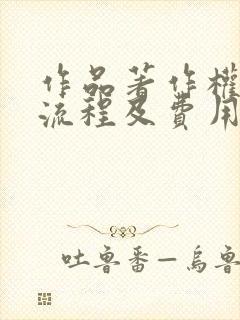 作品著作權
流程及費用
吐魯番—烏魯